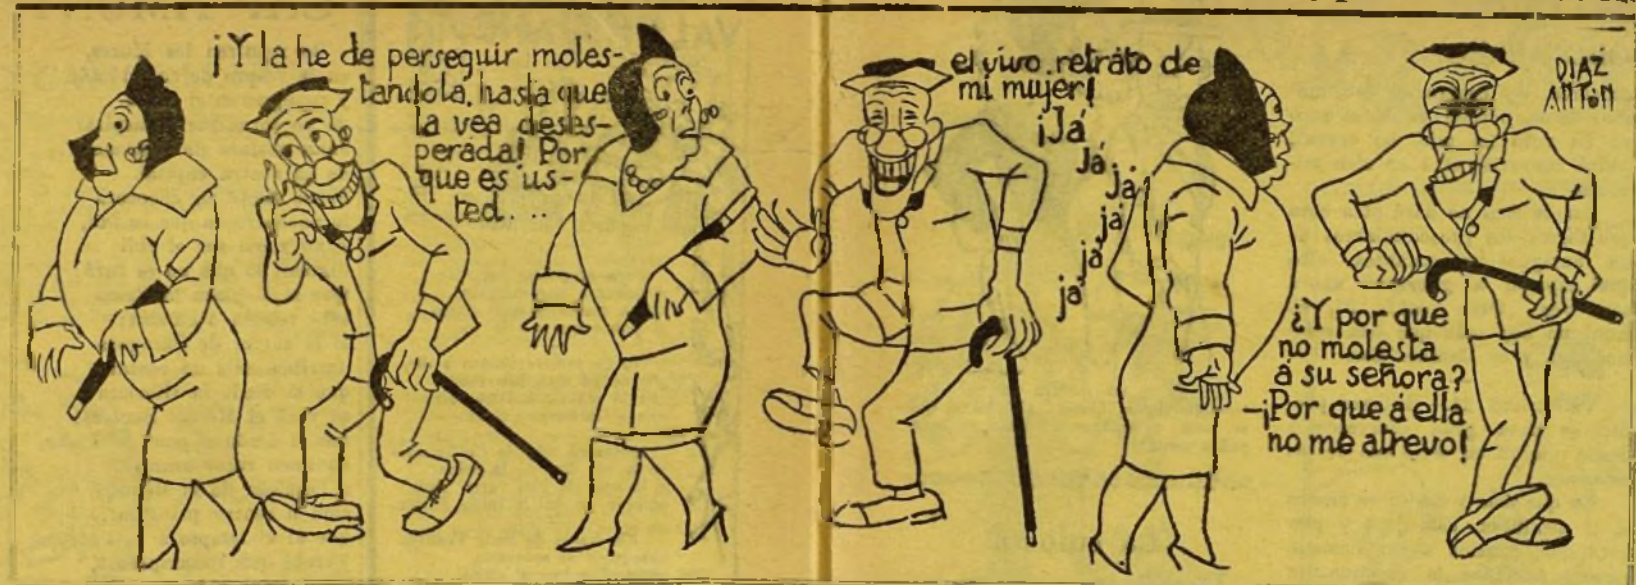 ¡Y la he de perseguir moles-
tandola, hasta que
la vea deses-
perada! Por
que es us-
ted. . .
el vivo retrato de
mi mujer!
¡Já
Já
já
já
já
já
¿Y por que
no molesta
á su señora?
-¡Por que á ella
no me atrevo!
DIAZ
ANTÓN